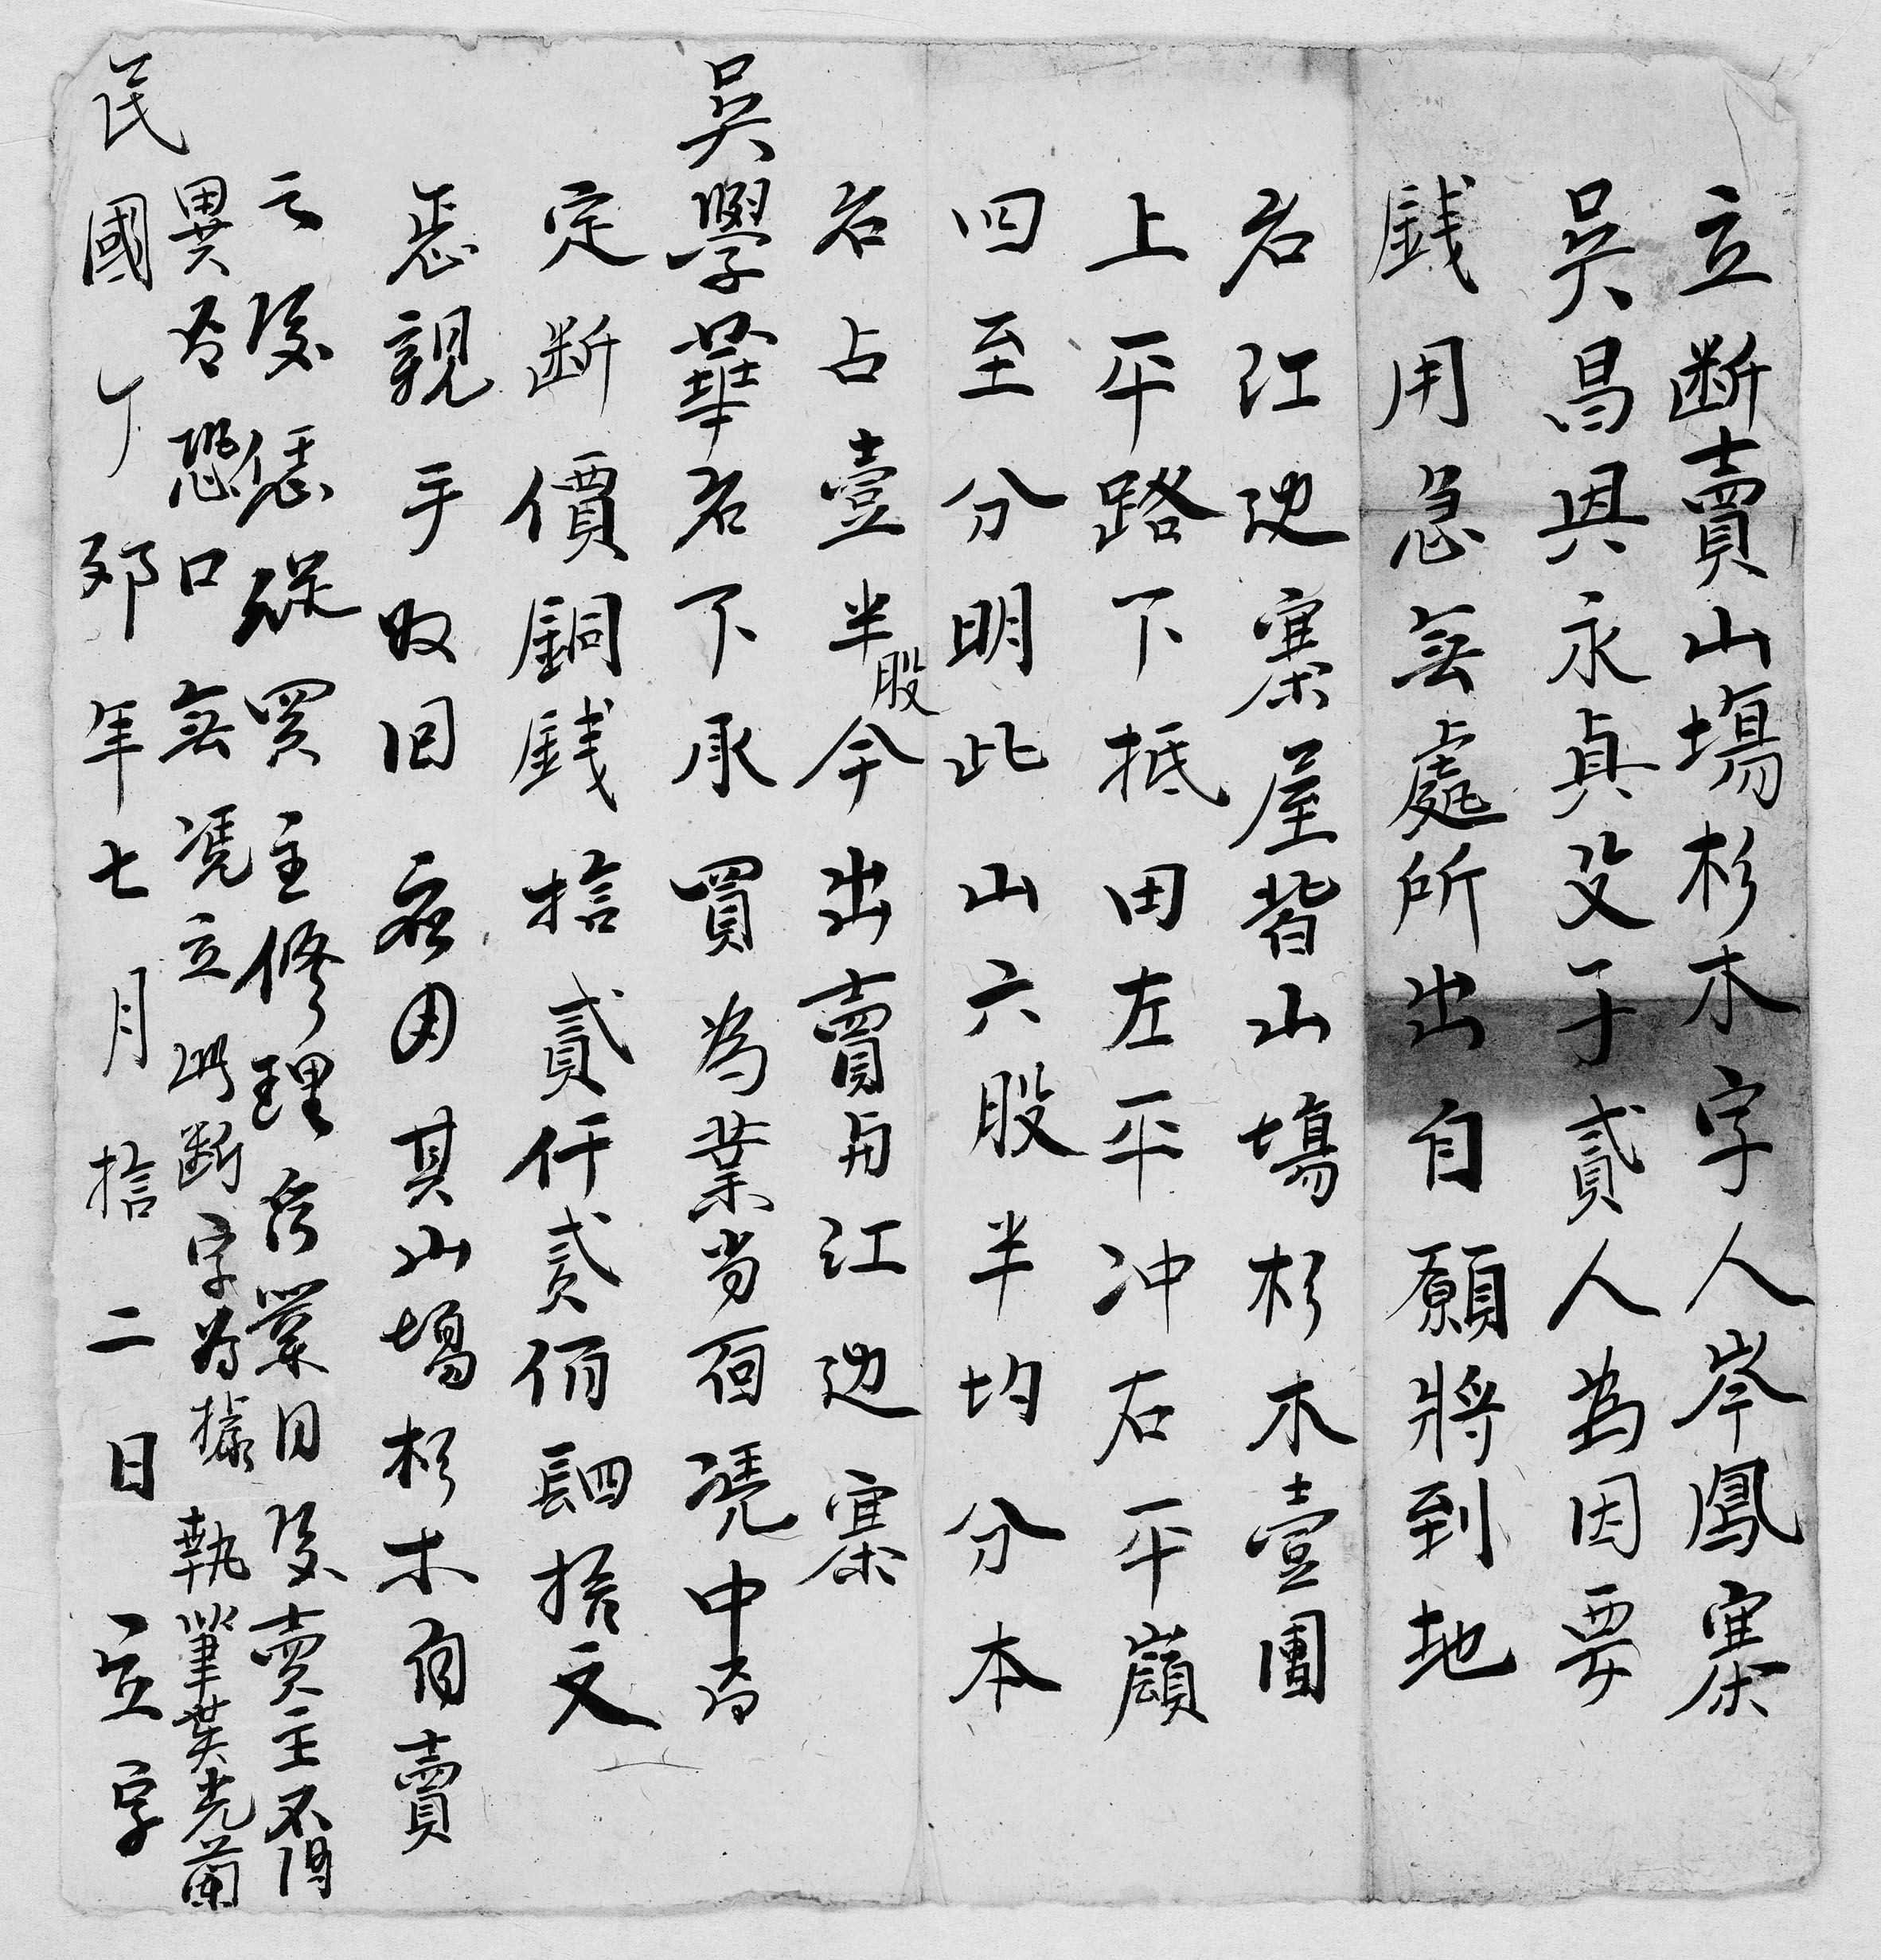 立断賣山場杉木字人岑鳳寨
吳昌恩永貞父子貳人為因要
錢用急無處所出自願將到地
名江边寨屋背山場杉木壹團
上平路下抵田左平冲右平嶺
四至分明此山六股半均分本
名占壹半股今出賣与江边寨
吳學華名下承買為業当面凭中言
定断價銅錢拾貳仟贰佰肆拾文
親手收回应用其山場杉木自賣
之後任從買主修理管業日後賣主不得
異言恐口無凭立此断字为據 執筆吳光蘭
民國丁卯年七月拾二日 立字